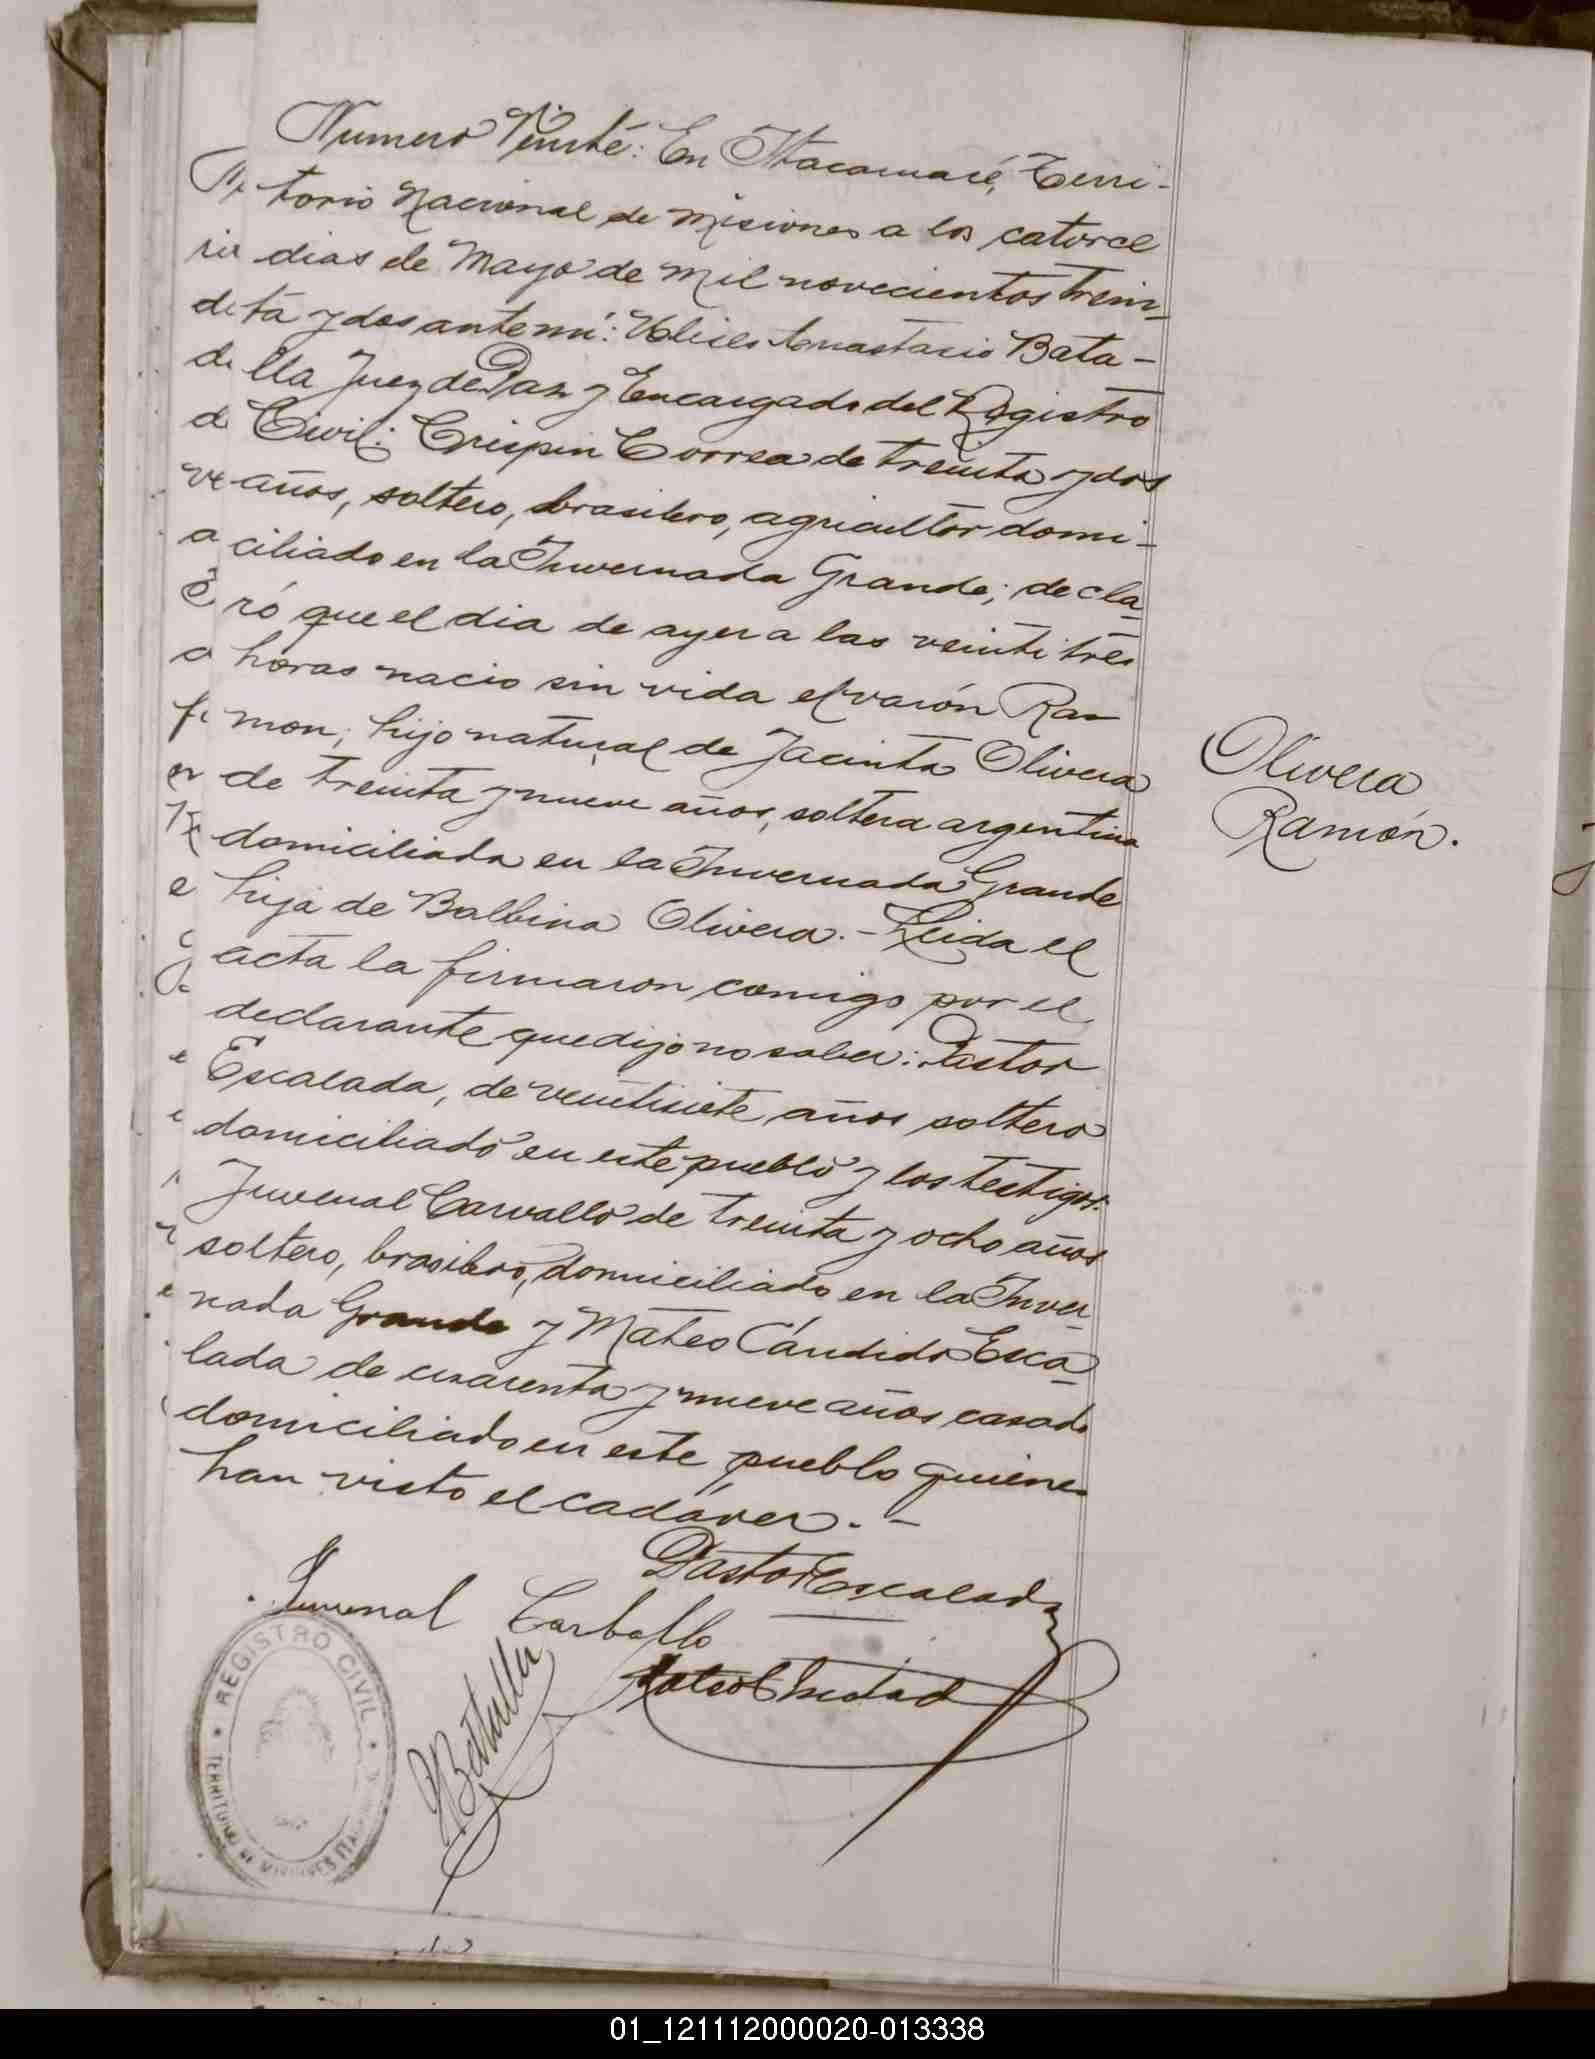 Numero Veinte: En Itacaruaré, Terri-
torio Nacional de Misiones a los catorce
dias de Mayo de Mil novecientos trein-
ta y dos ante mí: Ulises Anastacio Bata-
lla Juez de Paz y Encargado del Registro
Civil: Crispin Correa de treinta y dos
años, soltero, brasilero, agricultor domi-
ciliado en la Invernada Grande; decla-
ró que el dia de ayer a las veinti tres
horas nacio sin vida el varón Ra-
mon; hijo natural de Jacinta Olivera
de treinta y nueve años, soltera argentina
domiciliada en la Invernada Grande
hija de Balbina Olivera.- Leida el
acta la firmaron comigo por el
declarante que dijo no saber: Pastor
Escalada, de veintisiete años soltero
domiciliado en este pueblo y los testigos:
Juvenal Carvallo de treinta y ocho años
soltero, brasilero, domiciliado en la Inver-
nada Grande y Mateo Cándido Esca-
lada de cuarenta y nueve años casado
domiciliado en este pueblo quienes
han visto el cadáver.-
Olivera
Ramón.
Pastor Escalada
Juvenal Carballo
REGISTRO CIVIL
TERRITORIO DE MISIONES
01_121112000020-013338